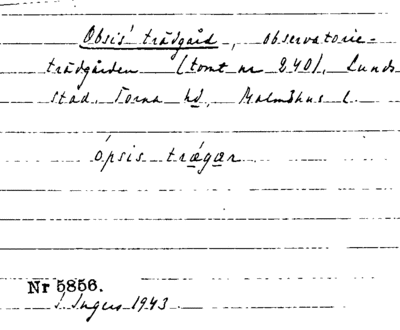 Obsis' trädgård, observatorie-
trädgården (tomt nr 240), Lunds
stad, Torna hd, Malmöhus l.
ópsis trǽgær
Nr 5856.
I. Ingers 1943